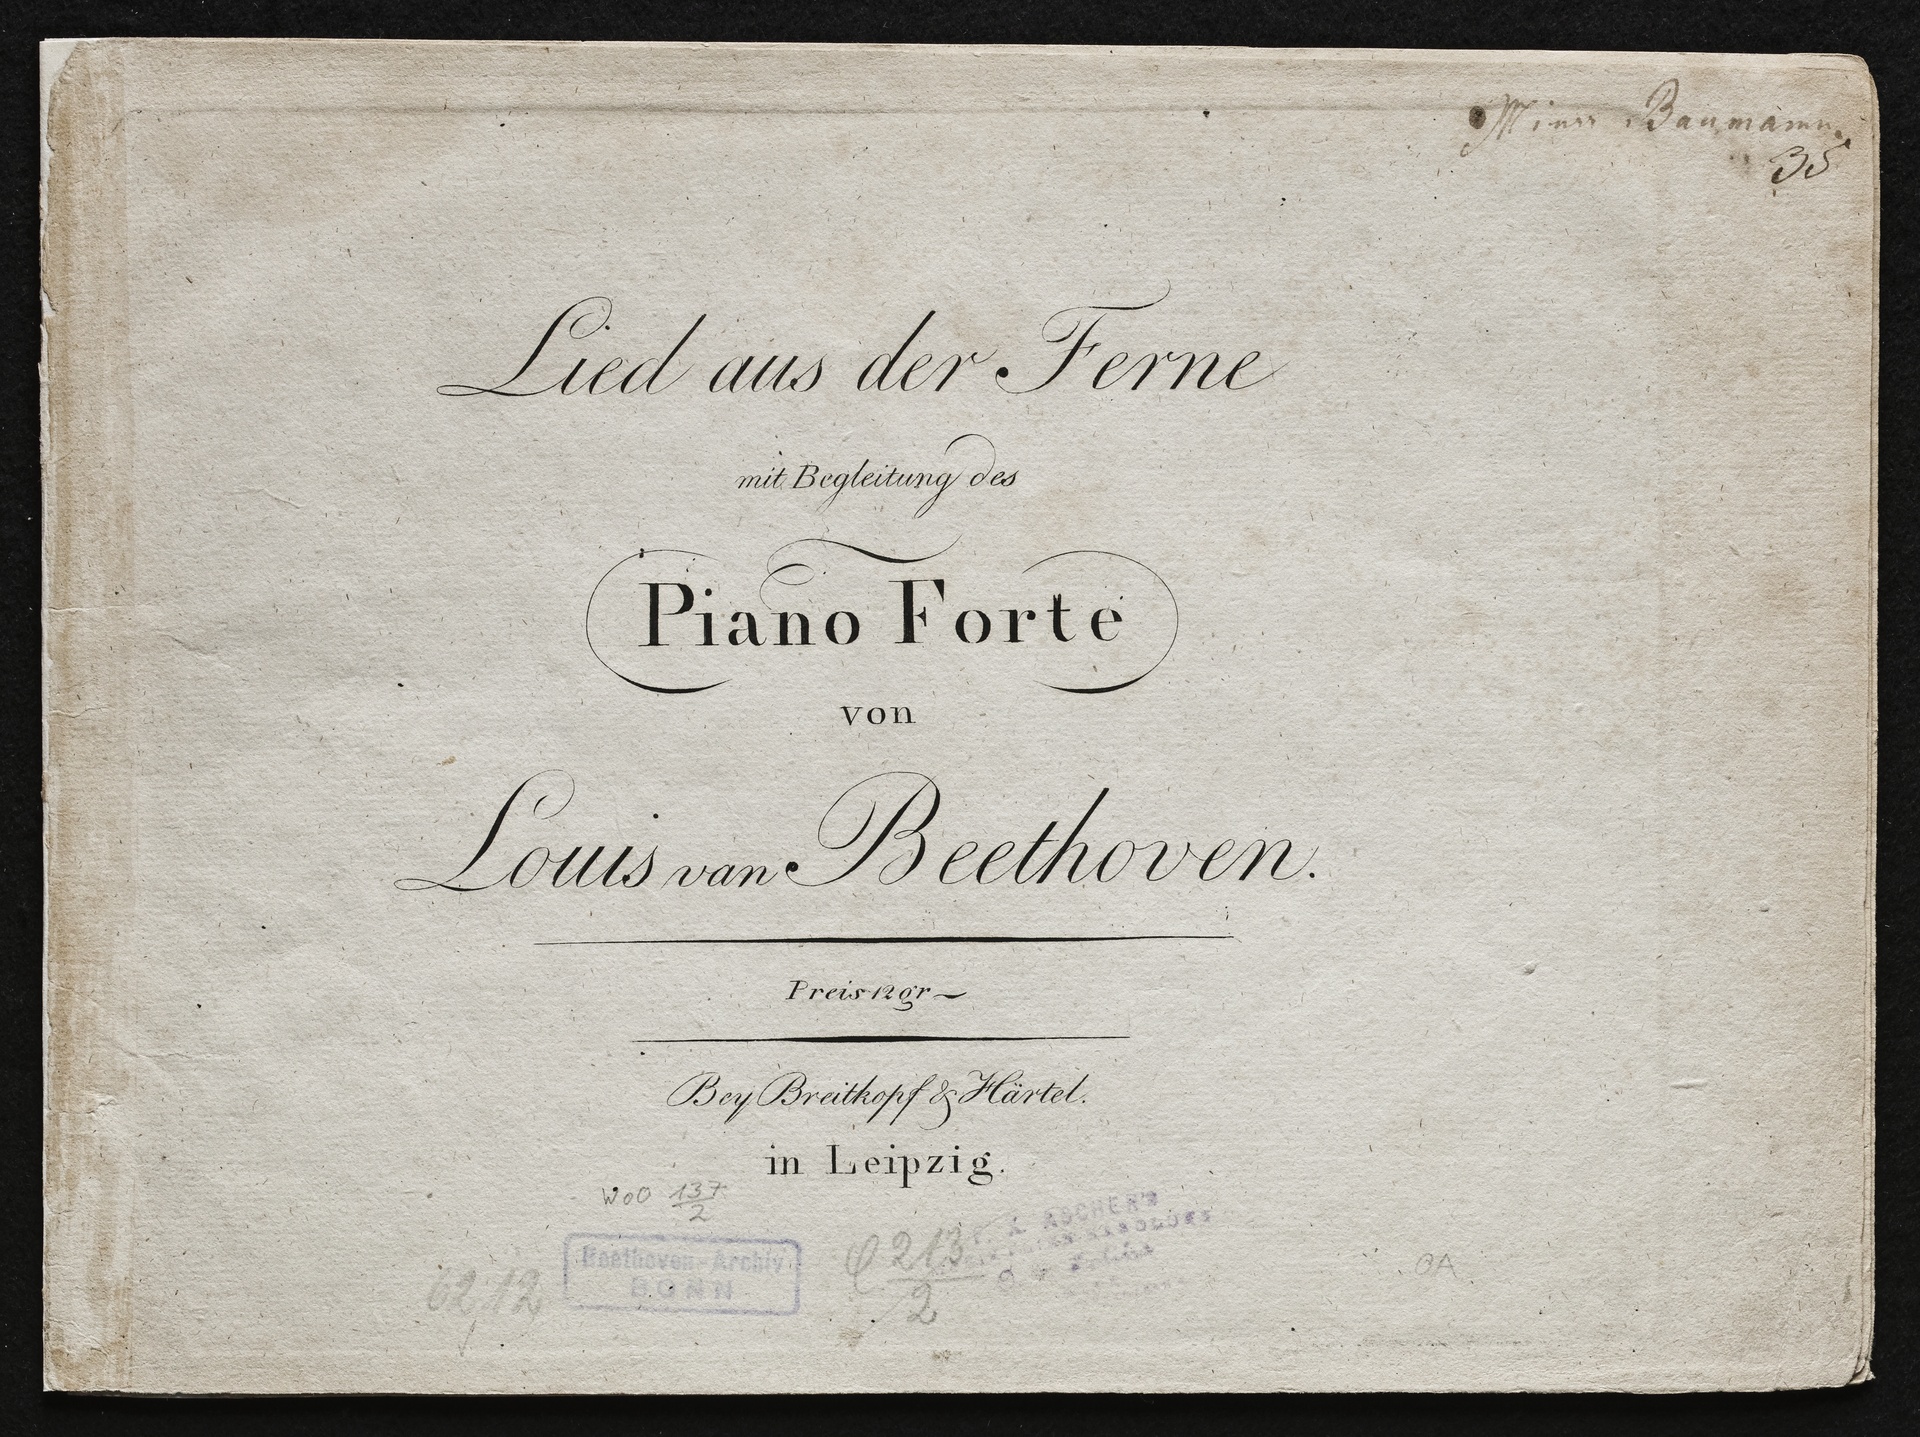 Baumann
35
Lied aus der Ferne
mit Begleitung des
Piano Forte
von
Louis van Beethoven.
Preis 12 gr
Bey Breitkopf & Härtel.
in Leipzig.
WoO 137/2
Beethoven-Archiv
BONN
213
2
OA